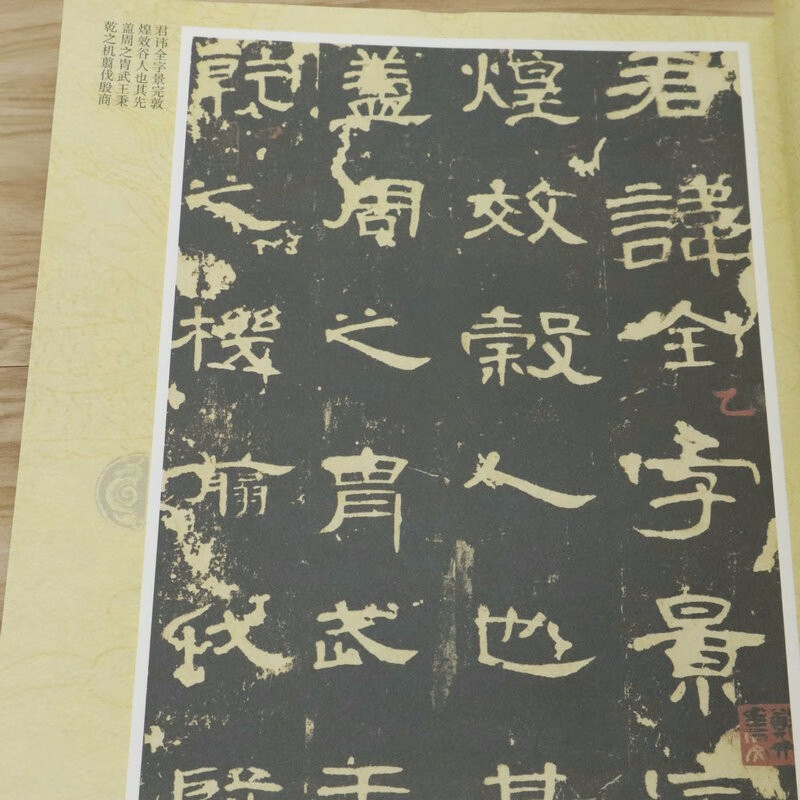 君諱全字景完
煌效穀人也其
盖周之胄武王
乾之機翦伐殷
乙
君讳全字景完敦
煌效谷人也其先
盖周之胄武王秉
乾之机翦伐殷商